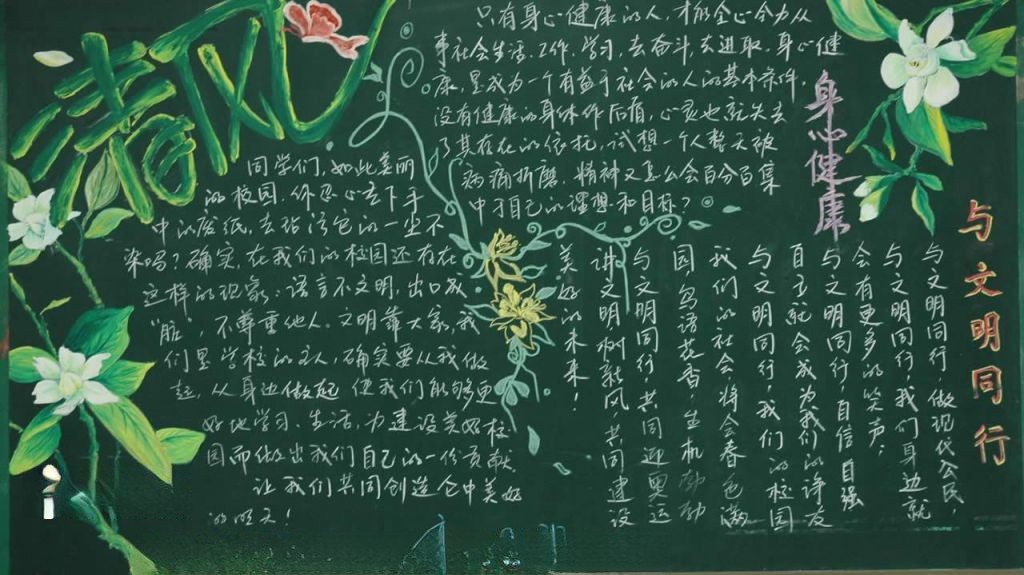 清风
只有身心健康的人，才能全心全力从
事社会生活、工作、学习、去奋斗、去进取。身心健
康，是成为一个有益于社会的人的基本条件，
没有健康的身体作后盾，心灵也就失去
了其存在的依托，试想一个人整天被
病痛折磨，精神又怎么会百分百集
中于自己的理想和目标？
身心健康
同学们，如此美丽
的校园，你忍心去下手
中的废纸，去玷污它的一尘不
染吗？确实，在我们的校园还存在
这样的现象：语言不文明，出口成
“脏”，不尊重他人。文明靠大家，我
们是学校的主人，确实要从我做
起，从身边做起，使我们能够更
好地学习、生活，为建设美好校
园而做出我们自己的一份贡献
让我们共同创造仓中美好
的明天！
与文明同行
与文明同行，做现代公民，
与文明同行，我们身边就
会有更多的笑声，
与文明同行，自信自强
自立就会成为我们的诤友
与文明同行，我们的校园
我们的社会将会春色满
园，鸟语花香，生机勃勃
与文明同行，共同迎奥运
讲文明树新风，共同建设
美好的未来！